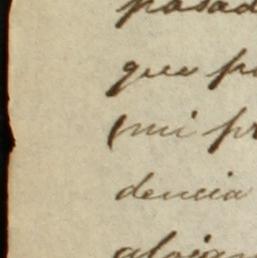 pasad
que p
(mi pr
dencia
alojan